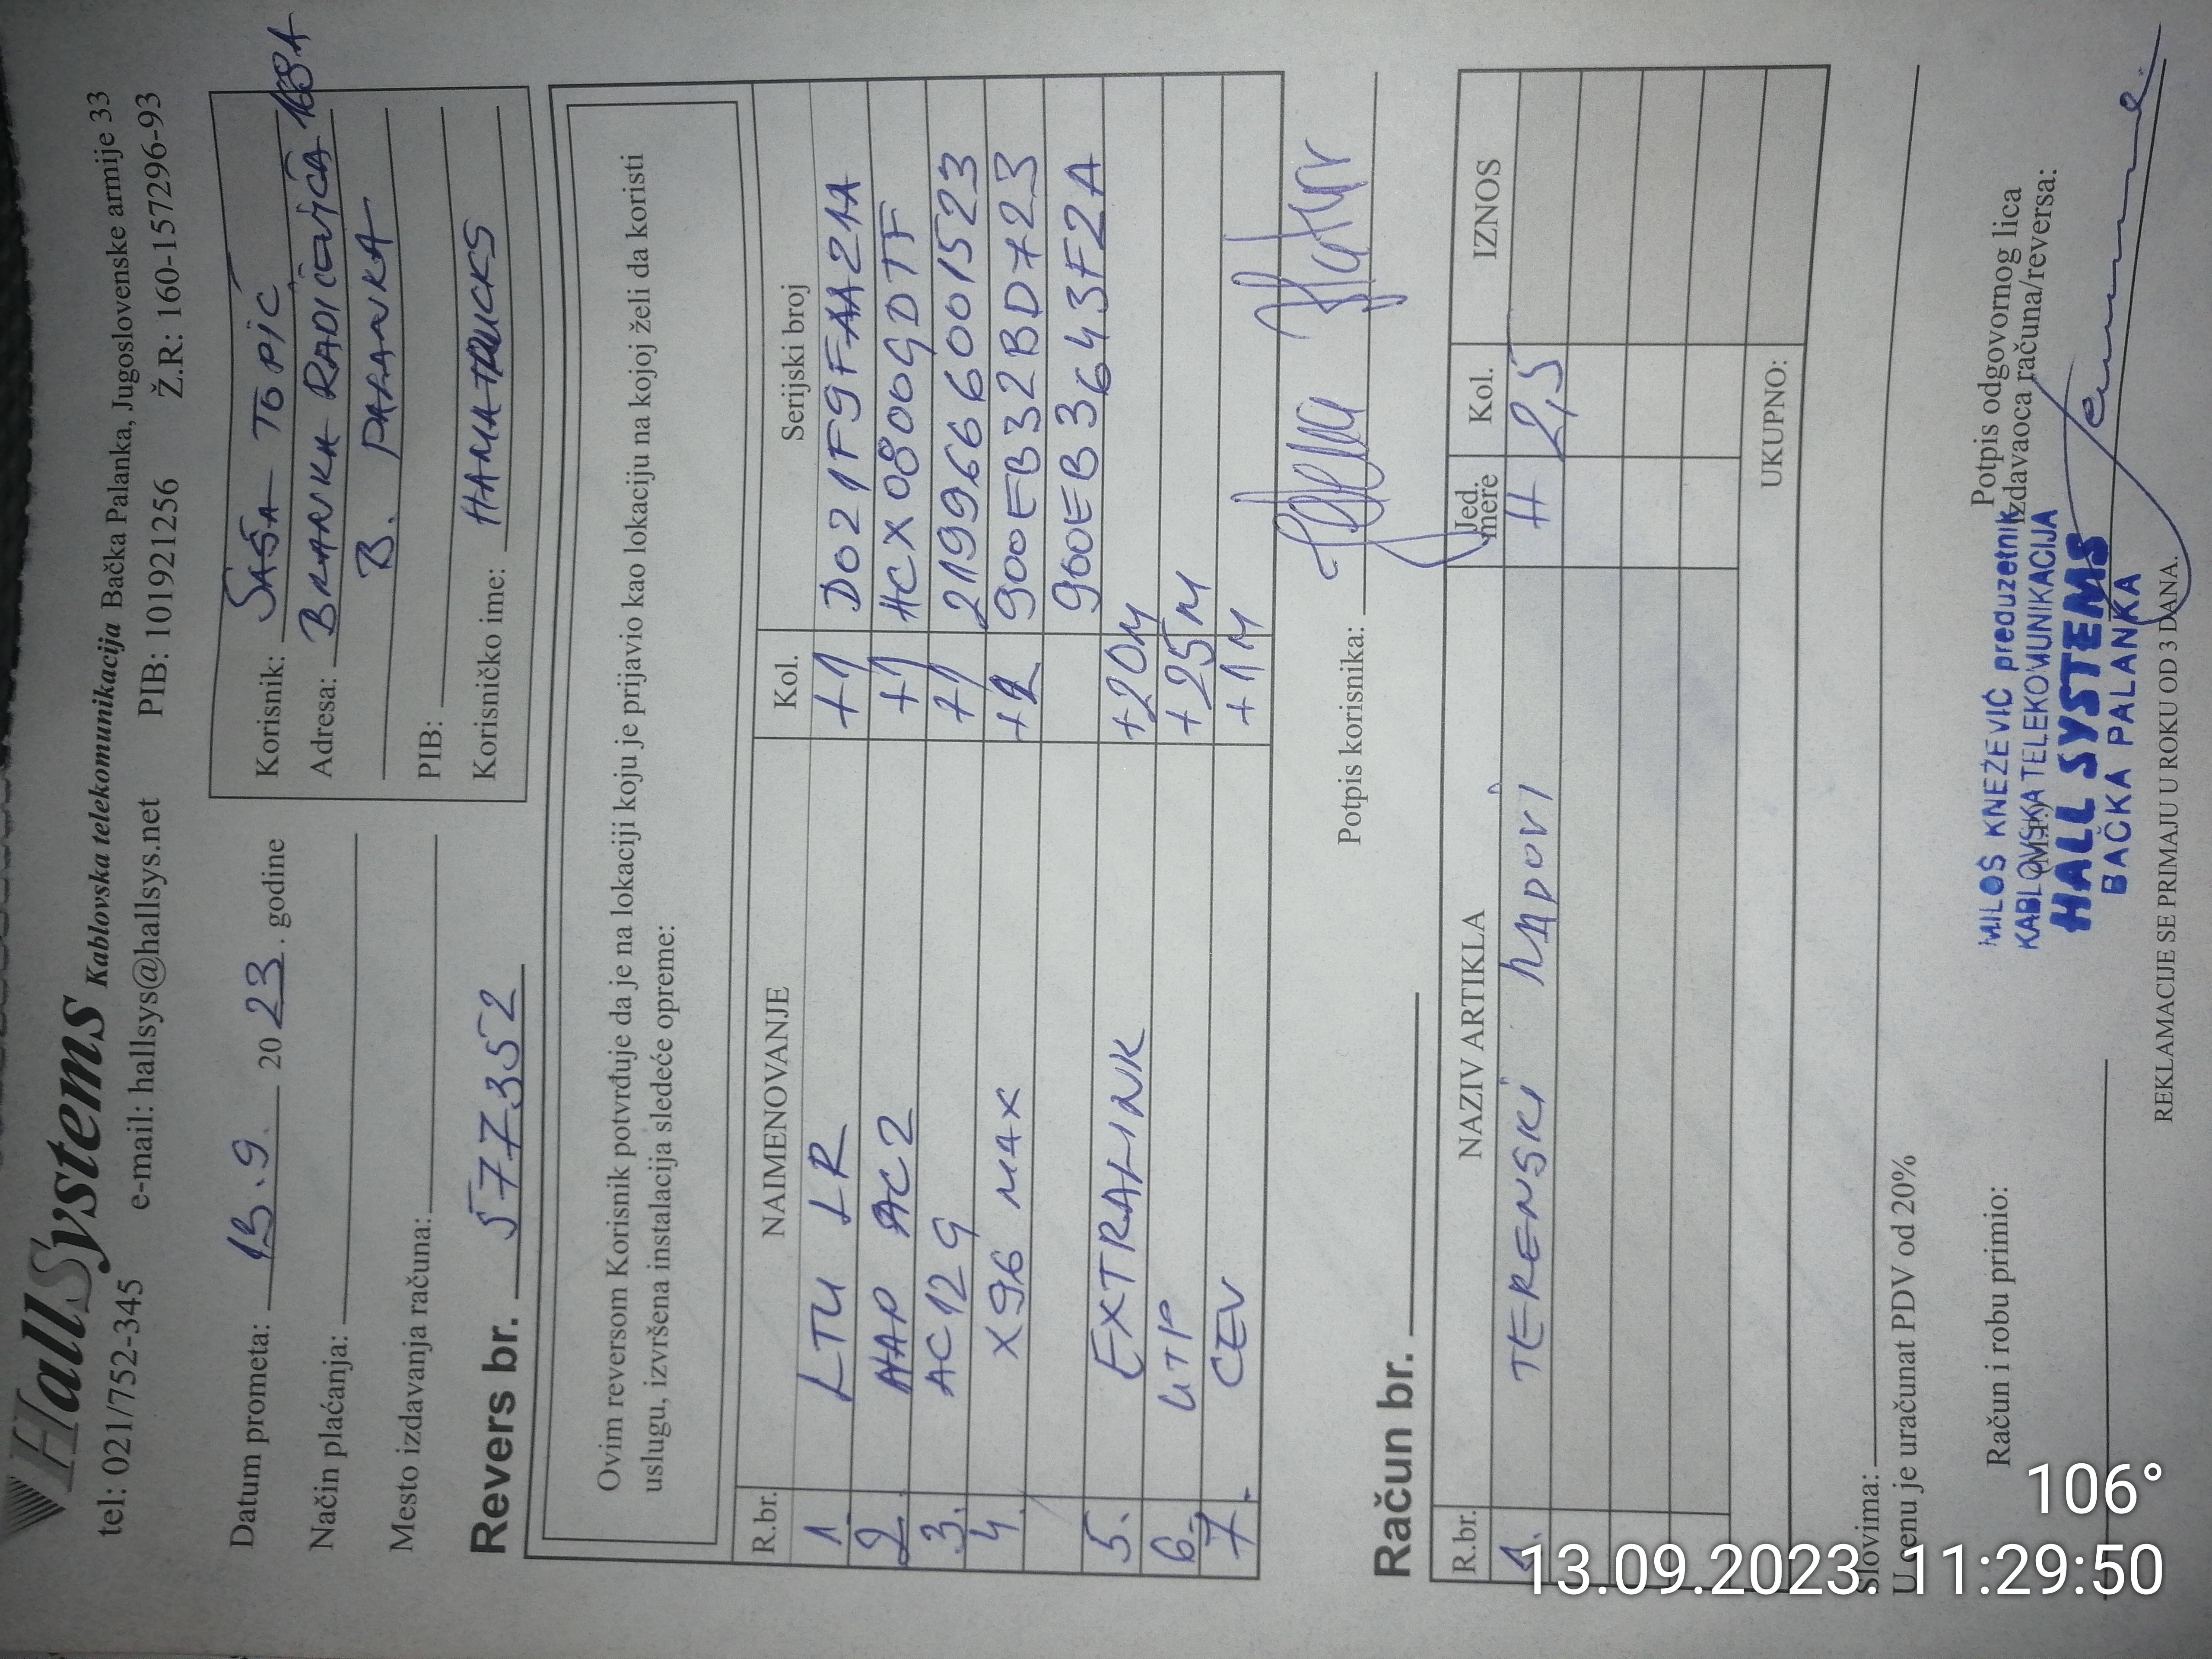 HallSystems Kablovska telekomunikacija Bačka Palanka, Jugoslovenske armije 33
tel: 021/752-345 e-mail: hallsys@hallsys.net PIB: 101921256 Ž.R: 160-157296-93
Datum prometa: 13.9. 2023. godine
Način plaćanja:
Mesto izdavanja računa:
Revers br. 577352
Korisnik: SAŠA TOPIĆ
Adresa: BRANKA RADIČEVIĆA 168A
B. PALANKA
PIB:
Korisničko ime: HAMATRUCKS
Ovim reversom Korisnik potvrđuje da je na lokaciji koju je prijavio kao lokaciju na kojoj želi da koristi
uslugu, izvršena instalacija sledeće opreme:
R.br. NAIMENOVANJE Kol. Serijski broj
1. LTU LR +1 D021F9FAA21A
2. HAP AC2 +1 HCX0800GDTF
3. AC12G +1 2199666001523
4. X96 MAX +2 900EB32BD723
900EB3643F2A
5. EXTRALINK +20M
6. UTP +25M
7. CEV +1M
Potpis korisnika:
Račun br.
R.br. NAZIV ARTIKLA Jed. mere Kol. IZNOS
1. TERENSKI RADOVI H 2,5
UKUPNO:
Slovima:
U cenu je uračunat PDV od 20%
Račun i robu primio:
Potpis odgovornog lica
izdavaoca računa/reversa:
(M.P.)
MILOŠ KNEŽEVIĆ preduzetnik
KABLOVSKA TELEKOMUNIKACIJA
HALL SYSTEMS
BAČKA PALANKA
REKLAMACIJE SE PRIMAJU U ROKU OD 3 DANA.
106°
13.09.2023. 11:29:50